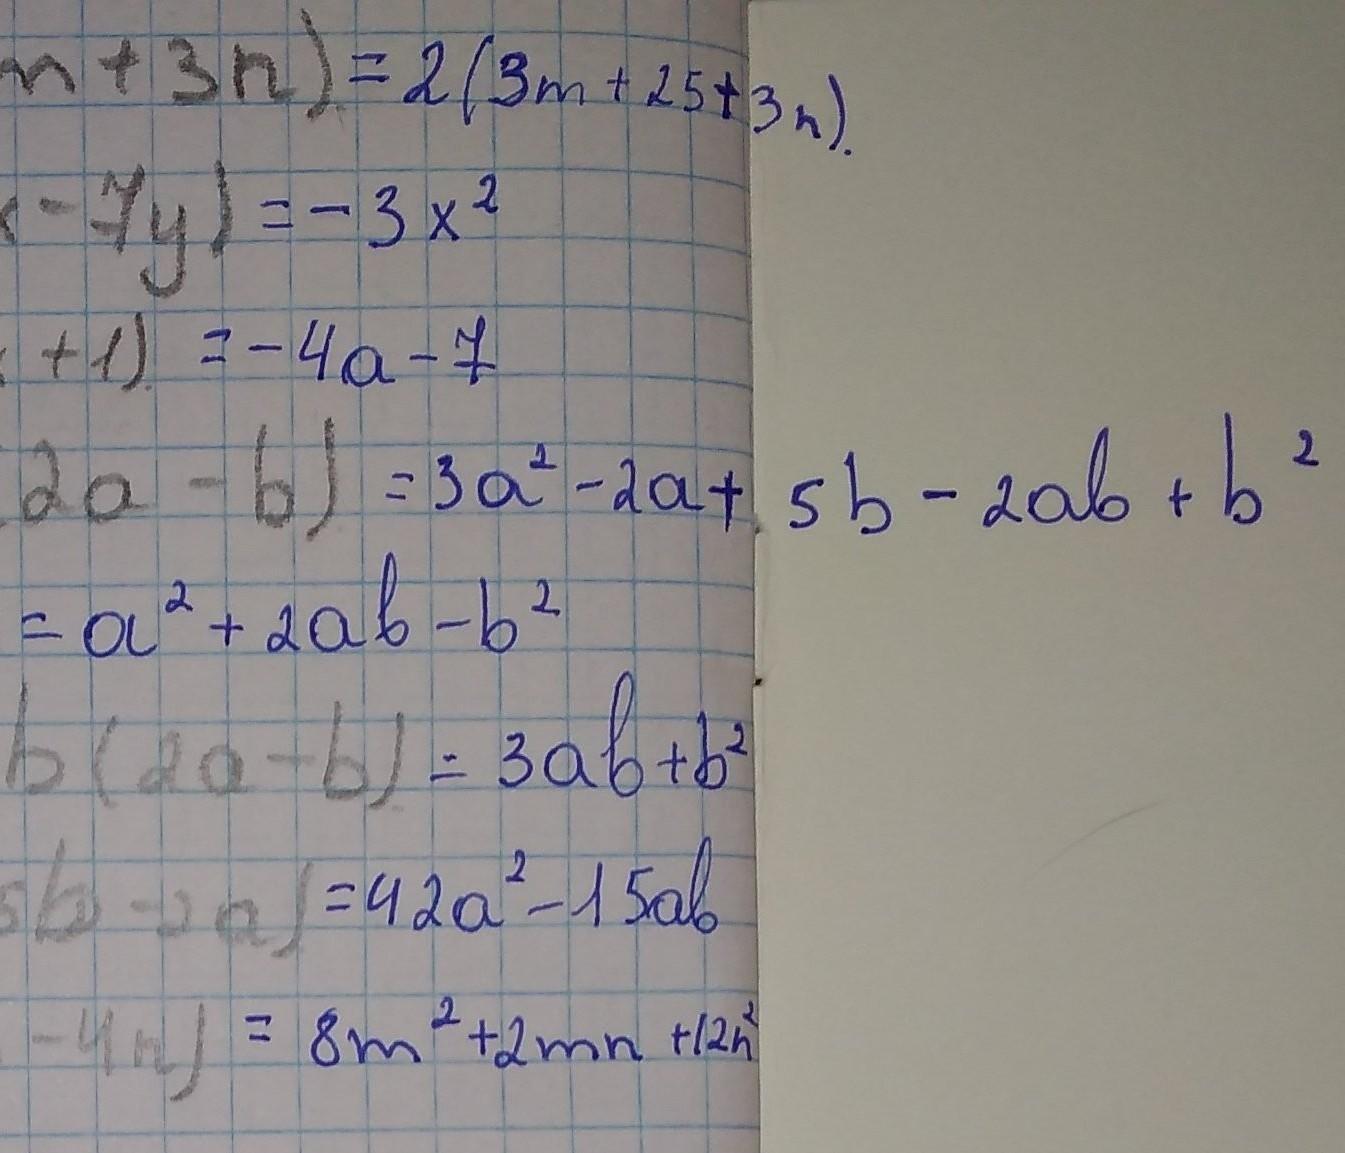 m + 3n) = 2(3m + 25 + 3n).
- 7y) = - 3x²
+ 1) = - 4a - 7
2a - b) = 3a² - 2a + 5b - 2ab + b²
= a² + 2ab - b²
b(2a - b) = 3ab + b²
5b - 2a) = 42a² - 15ab
- 4n) = 8m² + 2mn + 12n²